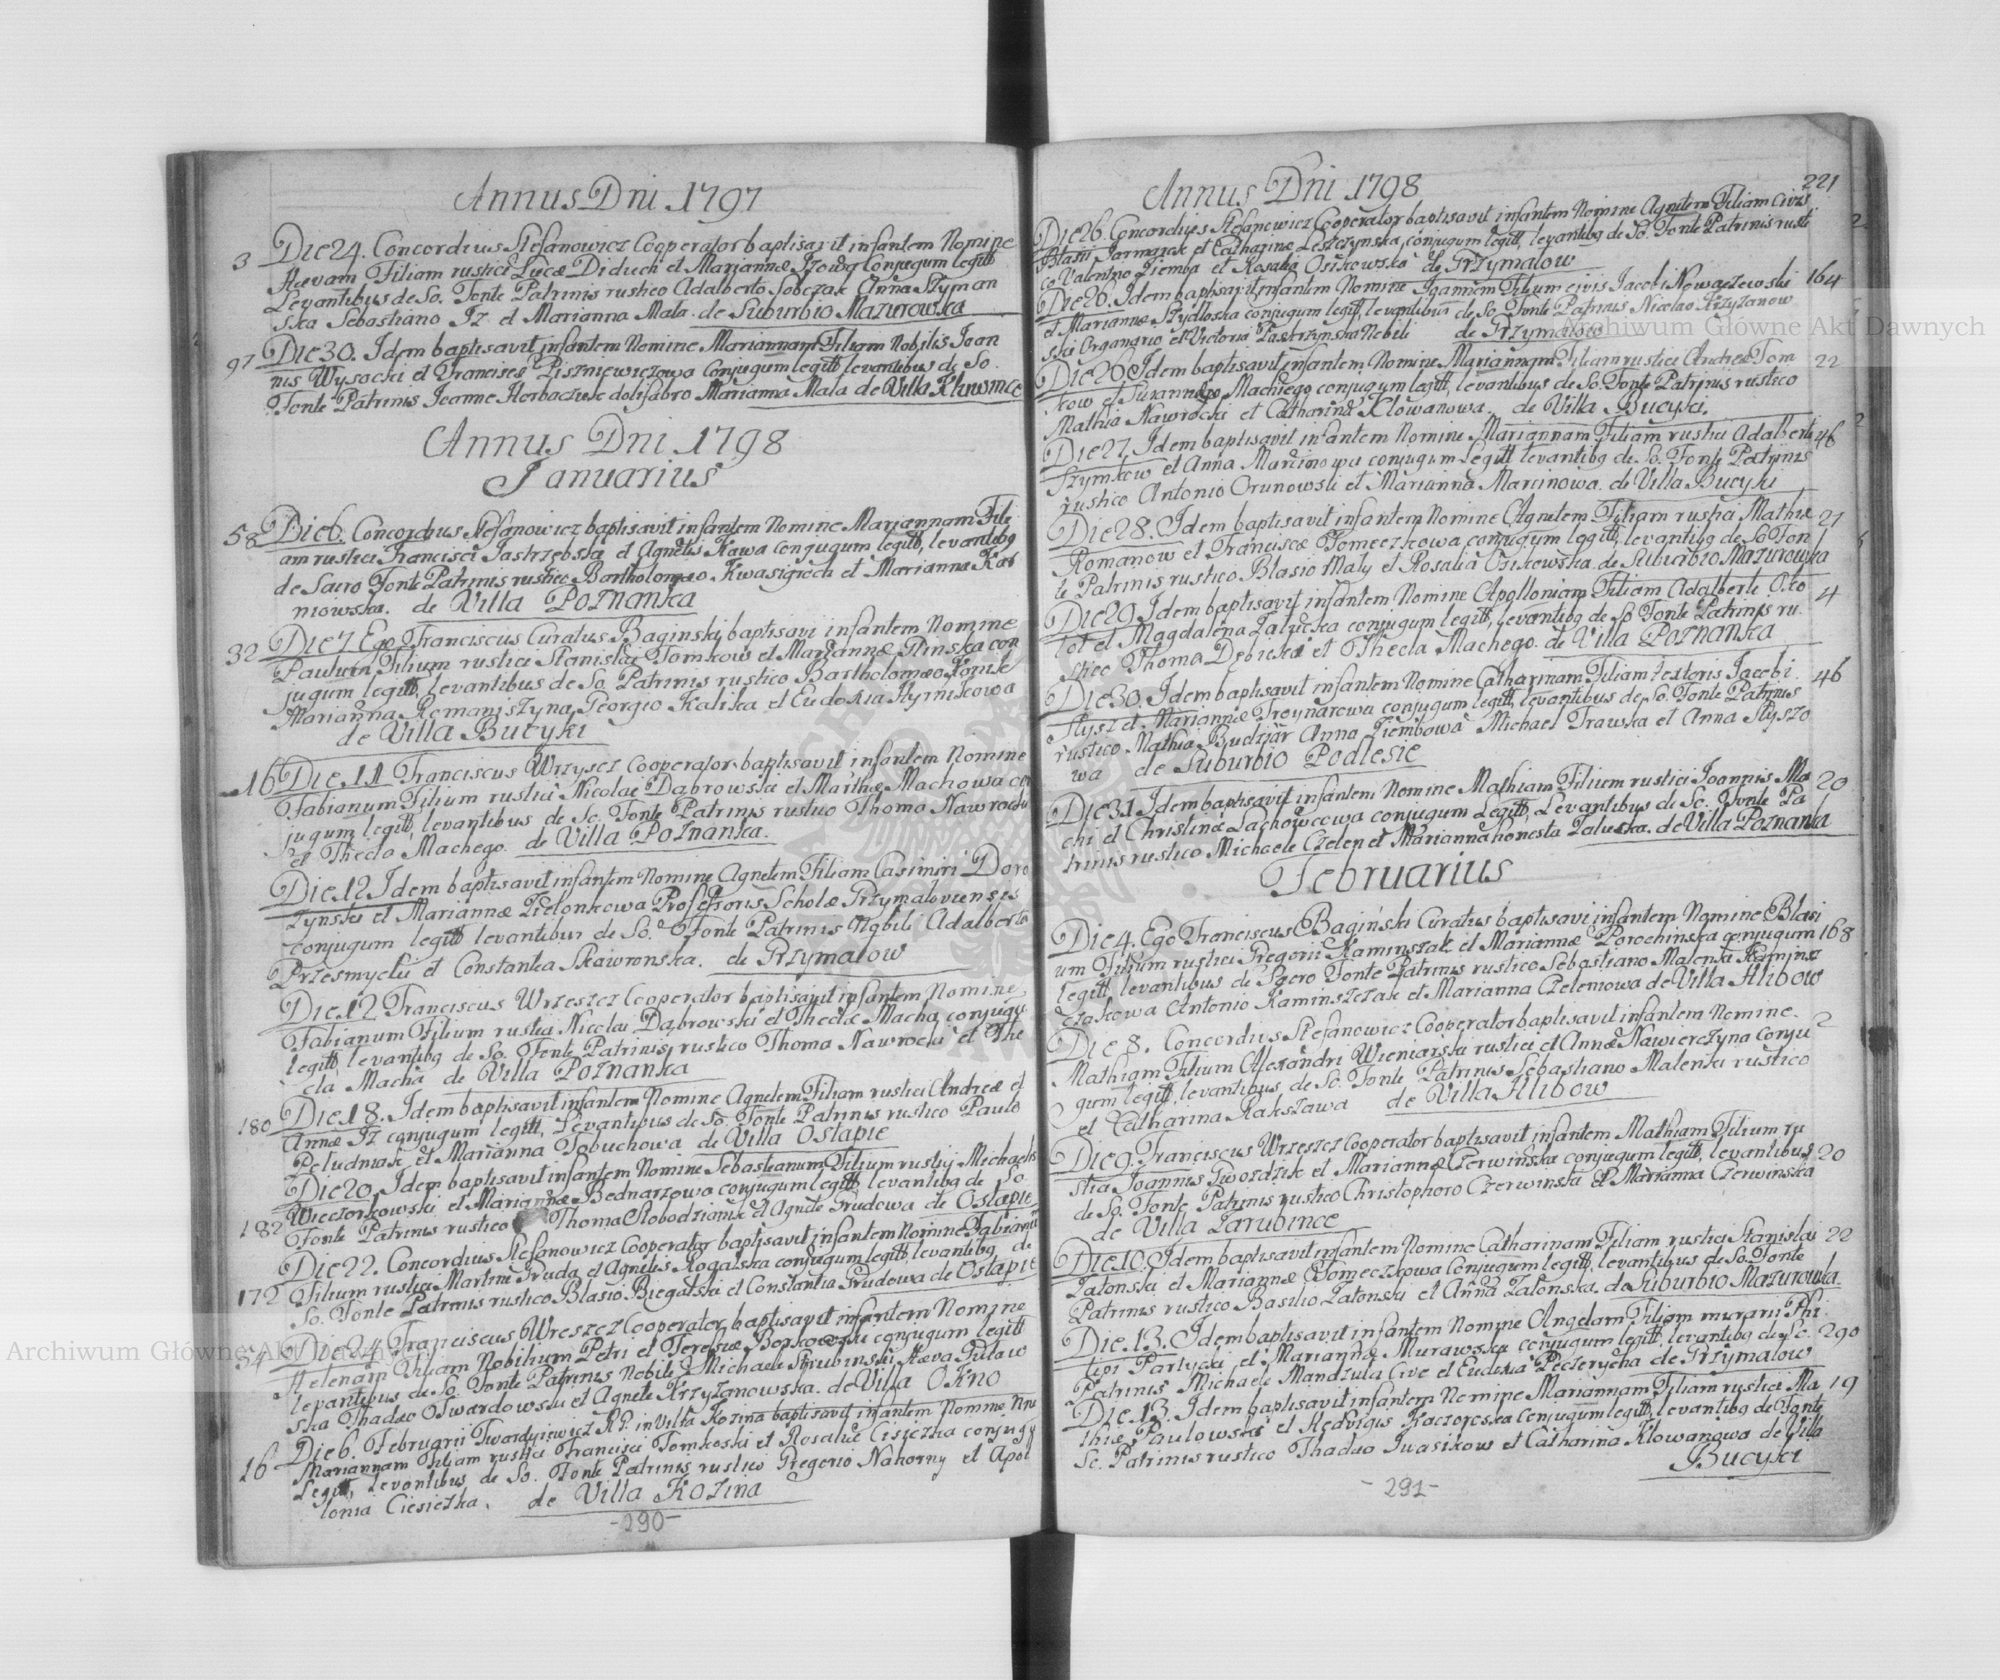 Annus Dni 1797
3 Die 24. Concordius Stefanowicz Cooperator baptisavit infantem Nomine
Hevam Filiam rustici Lucæ Diduch et Mariannæ Izowa Conjugum legitt
Levantibus de So. Fonte Patrinis rustico Adalberto Sobczak Anna Szyman
ska Sebastiano Iz et Marianna Mala. de Suburbio Mazurowka
97 Die 30. Idem baptisavit infantem Nomine Mariannam Filiam Nobilis Joan
nis Wysocki et Franciscæ Piszniewiczowa Conjugum legitt levantibus de So.
Fonte Patrinis Joanne Horbaczuk dolifabro Marianna Mala de Villa
Annus Dni 1798
Januarius
58 Die 6. Concordius Stefanowicz baptisavit infantem Nomine Mariannam Fili
am rustici Francisci Jastrzebski et Agnetis Kawa Conjugum legitt, levantibq
de Sacro Fonte Patrinis rustico Bartholomæo Kwasigroch et Marianna Kar
niowska. de Villa Poznanka
32 Die 7. Ego Franciscus Curatus Baginski baptisavi infantem Nomine
Paulum Filium rustici Stanislai Tomkow et Mariannæ Glinska con
jugum legitt, levantibus de So Patrinis rustico Bartholomæo
Marianna Romaniszyna, Georgio Kaliska et Eudoxia Hyrnikowa
de Villa Bucyki
16 Die 11 Franciscus Wrzysz Cooperator baptisavit infantem Nomine
Fabianum Filium rustici Nicolai Dąbrowski et Marthæ Machowa con
jugum legitt, levantibus de Sc. Fonte Patrinis rustico Thoma Nawrocki
et Thecla Machego. de Villa Poznanka.
Die 12 Idem baptisavit infantem Nomine Agnetem Filiam Casimiri Doro
zynski et Mariannæ Zielonkowa Professoris Scholæ Grzymaloviensis
conjugum legitt levantibus de So. Fonte Patrinis Nobili Adalberto
Przesmycki et Constantia Skawronska. de Grzymalow
Die 12 Franciscus Wrzeszcz Cooperator baptisavit infantem Nomine
Fabianum Filium rustici Nicolai Dąbrowski et Theclæ Macha conjugu
legitt, levantibq de So. Fonte Patrinis rustico Thoma Nawrocki et The
cla Macha de Villa Poznanka
180 Die 18. Idem baptisavit infantem Nomine Agnetem Filiam rustici Andreæ et
Annæ Iz conjugum legitt, Levantibus de So. Fonte Patrinis rustico Paulo
Poludniak et Marianna Sobuchowa de Villa Ostapie
Die 20. Idem baptisavit infantem Nomine Sebastianum Filium rustij Michaelis
182 Wieczorkowski et Mariannæ Bednarzowa conjugum legitt levantibq de So.
Fonte Patrinis rustico Thoma Slobodzianik et Agnete Grudowa de Ostapie
Die 22. Concordius Stefanowicz Cooperator baptisavit infantem Nomine Fabianu
172 Filium rustici Martini Gruda et Agnetis Rogalska conjugum legitt, levantibq de
So. Fonte Patrinis rustico Blasio Biegalski et Constantia Grudowa de Ostapie
54 Die 24 Franciscus Wreszcz Cooperator baptisavit infantem Nomine
Helenam Filiam Nobilium Petri et Teresiæ conjugum legitt
levantibus de So. Fonte Patrinis Nobile Michaele Heva Gulaw
ska Thadæo Twardowski et Agnete Krzyzanowska. de Villa Okno
16 Die 6. Februarii Twardyiewicz R.P. in Villa Kozina baptisavit infantem Nomine
Mariannam Filiam rustici Francisci Tomkoski et Rosaliæ Cisiczka conjugu
Legitt, levantibus de So. Fonte Patrinis rustico Gregorio Nahorny et Apol
lonia Ciesiczka. de Villa Kozina
-290-
Annus Dni 1798
221
Die 26. Concordius Stefanowicz Cooperator baptisavit infantem Nomine Agnetem Filiam Civis
Blasii Jarmarek et Catharinæ Leszczynska, conjugum legitt, levantibq de So. Fonte Patrinis rusti
co Valentino Ziemba et Rosalia Osikowska de Grzymalow
Die 26. Idem baptisavit infantem Nomine Joannem Filium civis Jacobi Nowaczewski 164
et Mariannæ Szydloska conjugum legitt, levantibus de So. Fonte Patrinis Nicolao Krzyzanow
ski Organario et Victoria Pastrzynska Nobili de Grzymalow
Die 26 Idem baptisavit infantem Nomine Mariannam Filiam rustici Andreæ Tom 22
kow et Susannæ Machiego conjugum legitt, levantibus de So. Fonte Patrinis rustico
Mathia Nawrocki et Catharina Klowanowa. de Villa Bucyki.
Die 27. Idem baptisavit infantem Nomine Mariannam Filiam rustici Adalberti 46
Szymkow et Anna Marcinowa conjugum legitt levantibq de So. Fonte Patrinis
rustico Antonio Orunowski et Marianna Marcinowa. de Villa Bucyki
Die 28. Idem baptisavit infantem Nomine Agnetem Filiam rustici Mathiæ 21
Romanow et Franciscæ Tomeczkowa conjugum legitt, levantibq de So Fon
te Patrinis rustico Blasio Maly et Rosalia Osikowska. de Suburbio Mazurowka
Die 29. Idem baptisavit infantem Nomine Apolloniam Filiam Adalberti Oko 4
tot et Magdalena Zalucka conjugum legitt, levantibq de So Fonte Patrinis ru
stico Thoma Debicki et Thecla Machego. de Villa Poznanka
Die 30. Idem baptisavit infantem Nomine Catharinam Filiam textoris Jacobi. 46
Slysz et Mariannæ Troynarowa conjugum legitt, levantibus de So. Fonte Patrinis
rustico Mathia Budziar Anna Ziembowa Michael Trawska et Anna Slyszo
wa de Suburbio Podlesie
Die 31. Idem baptisavit infantem Nomine Mathiam Filium rustici Joannis Ma 20
chi et Christina Lachowcowa conjugum Legitt, Levantibus de Sc. Fonte Pa
trinis rustico Michaele Czelen et Marianna honesta Zalucka. de Villa Poznanka
Februarius
Die 4. Ego Franciscus Baginski Curatus baptisavi infantem Nomine Blasi
um Filium rustici Gregorii Kaminszak et Mariannæ Porochinska conjugum 168
legitt, levantibus de Sacro Fonte Patrinis rustico Sebastiano Malenki Kaminsz
czakowa Antonio Kaminszczak et Marianna Czeleniowa de Villa Hlibow
Die 8. Concordius Stefanowicz Cooperator baptisavit infantem Nomine.
Mathiam Filium Alexandri Wieniarski rustici et Annæ Nawierczyna conju 2
gum legitt, levantibus, de So. Fonte Patrinis Sebastiano Malenki rustico
et Catharina Rakszawa de Villa Hlibow
Die 9. Franciscus Wrzeszcz Cooperator baptisavit infantem Mathiam Filium ru
stici Joannis Gwozdzik et Mariannæ Czerwinska conjugum legitt, levantibus 20
de So. Fonte Patrinis rustico Christophoro Czerwinski et Marianna Czerwinska
de Villa Zarubince
Die 10. Idem baptisavit infantem Nomine Catharinam Filiam rustici Stanislai 22
Zatonski et Mariannæ Tomeczkowa Conjugum legitt, levantibus de So. Fonte
Patrinis rustico Basilio Zatonski et Anna Zalonska. de Suburbio Mazurowka.
Die 13. Idem baptisavit infantem Nomine Angelam Filiam murarii Phi
lipi Partycki et Mariannæ Murawska conjugum legitt, levantibq de Sc. 290
Patrinis Michaele Mandzula Cive et Eudoxia Peczerycha de Grzymalow
Die 13. Idem baptisavit infantem Nomine Mariannam Filiam rustici Ma 19
thiæ Paulowski et Hedvigis Kaczoroska conjugum legitt, levantibq de Fonte
Sc. Patrinis rustico Thadæo Iwasikow et Catharina Klowanowa de Villa
Bucyki
-291-
Archiwum Główne Akt Dawnych
Archiwum Główne Akt Dawnych